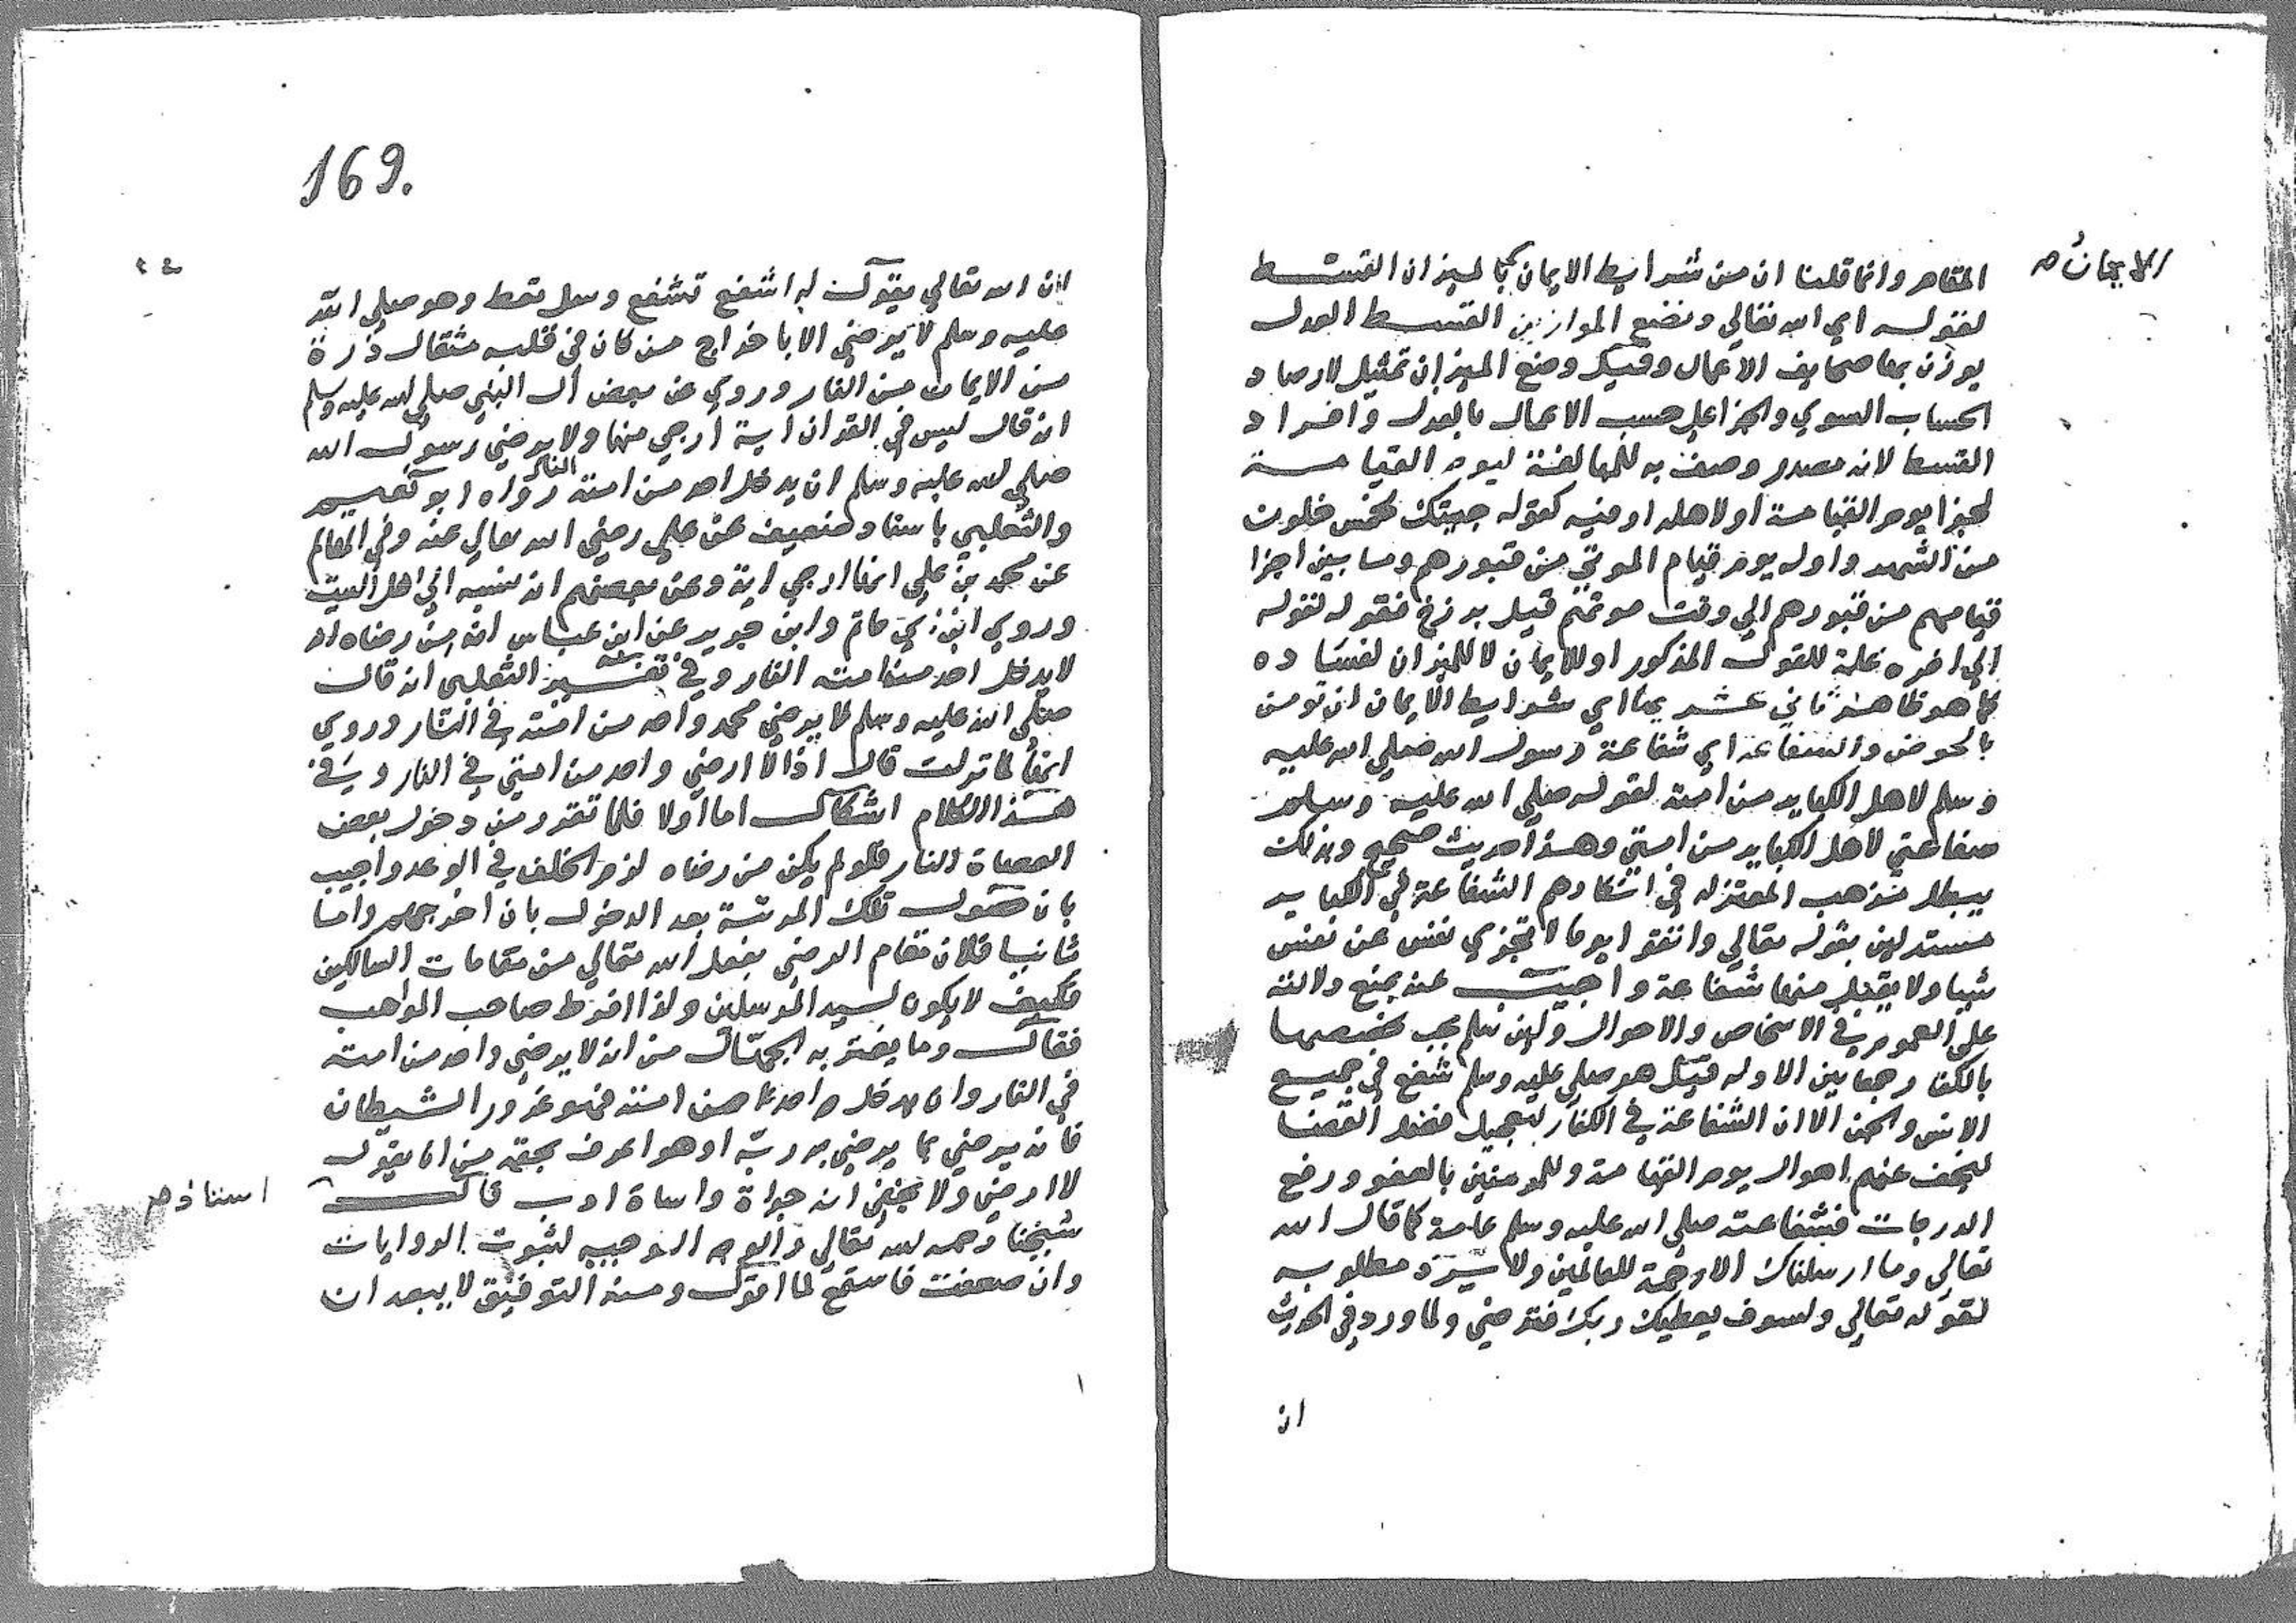 الايمان ه
المقاهر وانما قلنا ان من شرايط الايمان بالميزان القسط
لقوله اي الله تعالي ونضع الموازين القسط العدل
يوزن بها صحايف الاعمال وقيل وضع الميزان تمثيل لارصاد
الحساب السوي والجزا علي حسب الاعمال بالعدل وافراد
القسط لانه مصدر وصف به للمبالغة ليوم القيامة
لجزا يوم القيامة اولاهله او فيه كقوله جيتك لخمس خلون
من الشهر واوله يوم قيام الموتي من قبورهم وما بين اجزا
قيامهم من قبورهم الي وقت موتهم قيل برزخ فقوله لقوله
الي اخره علة للقول المذكور او للايمان لا للميزان لفساده
كما هو ظاهر ثاني عشر بها اي شرايط الايمان ان تومن
بالحوض والشفاعة اي شفاعة رسول الله صلي الله عليه
وسلم لاهل الكباير من امته لقوله صلي الله عليه وسلم
شفاعتي لاهل الكباير من امتي وهذا حديث صحيح وبذلك
يبطل مذهب المعتزله في انكارهم الشفاعة في الكباير
مستدلين بقوله تعالي واتقوا يوما لا تجزي نفس عن نفس
شيا ولا يقبل منها شفاعة واجيب عنه بمنع دلالته
علي العموم في الاشخاص والاحوال ولين سلم يجب تخصيصها
بالكفار جمعا بين الادله قيل هو صلي عليه وسلم شفع في جميع
الانس والجن الا ان الشفاعة في الكفار لتعجيل فصل القضا
ليخف عنهم اهوال يوم القيامة وللمومنين بالعفو ورفع
الدرجات فشفاعته صلي الله عليه وسلم عامة كما قال الله
تعالي وما ارسلناك الا رحمة للعالمين ولا يرد مطلوبه
لقوله تعالي ولسوف يعطيك ربك فترضي ولما ورد في الحديث
ان
169.
ان الله تعالي يقول له اشفع تشفع وسل تعط وهو صلي الله
عليه وسلم لا يرضي الا باخراج من كان في قلبه مثقال ذرة
من الايمان من النار وروي عن بعض ال النبي صلي الله عليه وسلم
انه قال ليس في القران اية ارجي منها ولا يرضي رسول الله
صلي الله عليه وسلم ان يدخل احد من امته النار رواه ابو نعيم
والثعلبي باسناد ضعيف عن علي رضي الله تعالي عنه وفي المعالم
عن محمد بن علي انها ارجي اية وعن بعضهم انه نسبه الي اهل البيت
وروي ابن ابي حاتم وابن جرير عن ابن عباس انه من رضاه ان
لا يدخل احد من امته النار وفي تفسير الثعلبي انه قال
صلي الله عليه وسلم لا يرضي محمد واحد من امته في النار وروي
انها لما نزلت قال اذا لا ارضي واحد من امتي في النار وفي
هذا الكلام اشكال اما اولا فلما تقرر من دخول بعض
العصاة النار فلو لم يكن من رضاه لزم الخلف في الوعد واجيب
بان حصول تلك المرتبة بعد الدخول بان اخرجهم واما
ثانيا فلان مقام الرضي بفعل الله تعالي من مقامات السالكين
فكيف لا يكون لسيد المرسلين ولذا افرط صاحب المواهب
فقال وما يغتر به الجهال من انه لا يرضي واحد من امته
في النار وان يدخل واحد من امته فهو غرور الشيطان
فانه يرضي بما يرضي به ربه اذ هو اعرف بحقه من ان يقول
لا ارضي ولا يخفي انه جراة واساة ادب قال
استاذهم
شيخنا رحمه الله تعالي والوجه الوجيه لثبوت الروايات
وان ضعفت فاستمع لما اقول ومنه التوفيق لا يبعد ان